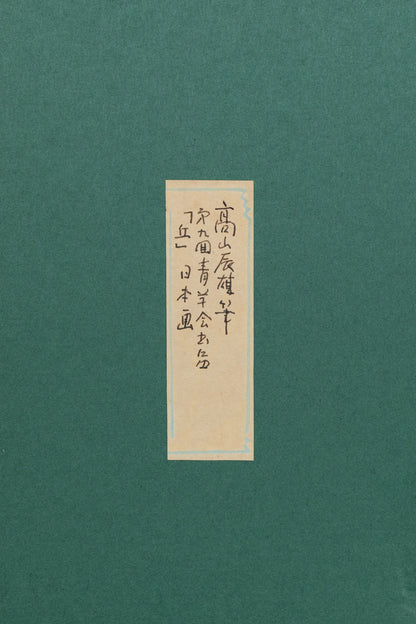 髙山辰雄筆
第九回青羊会出品
「丘」日本画